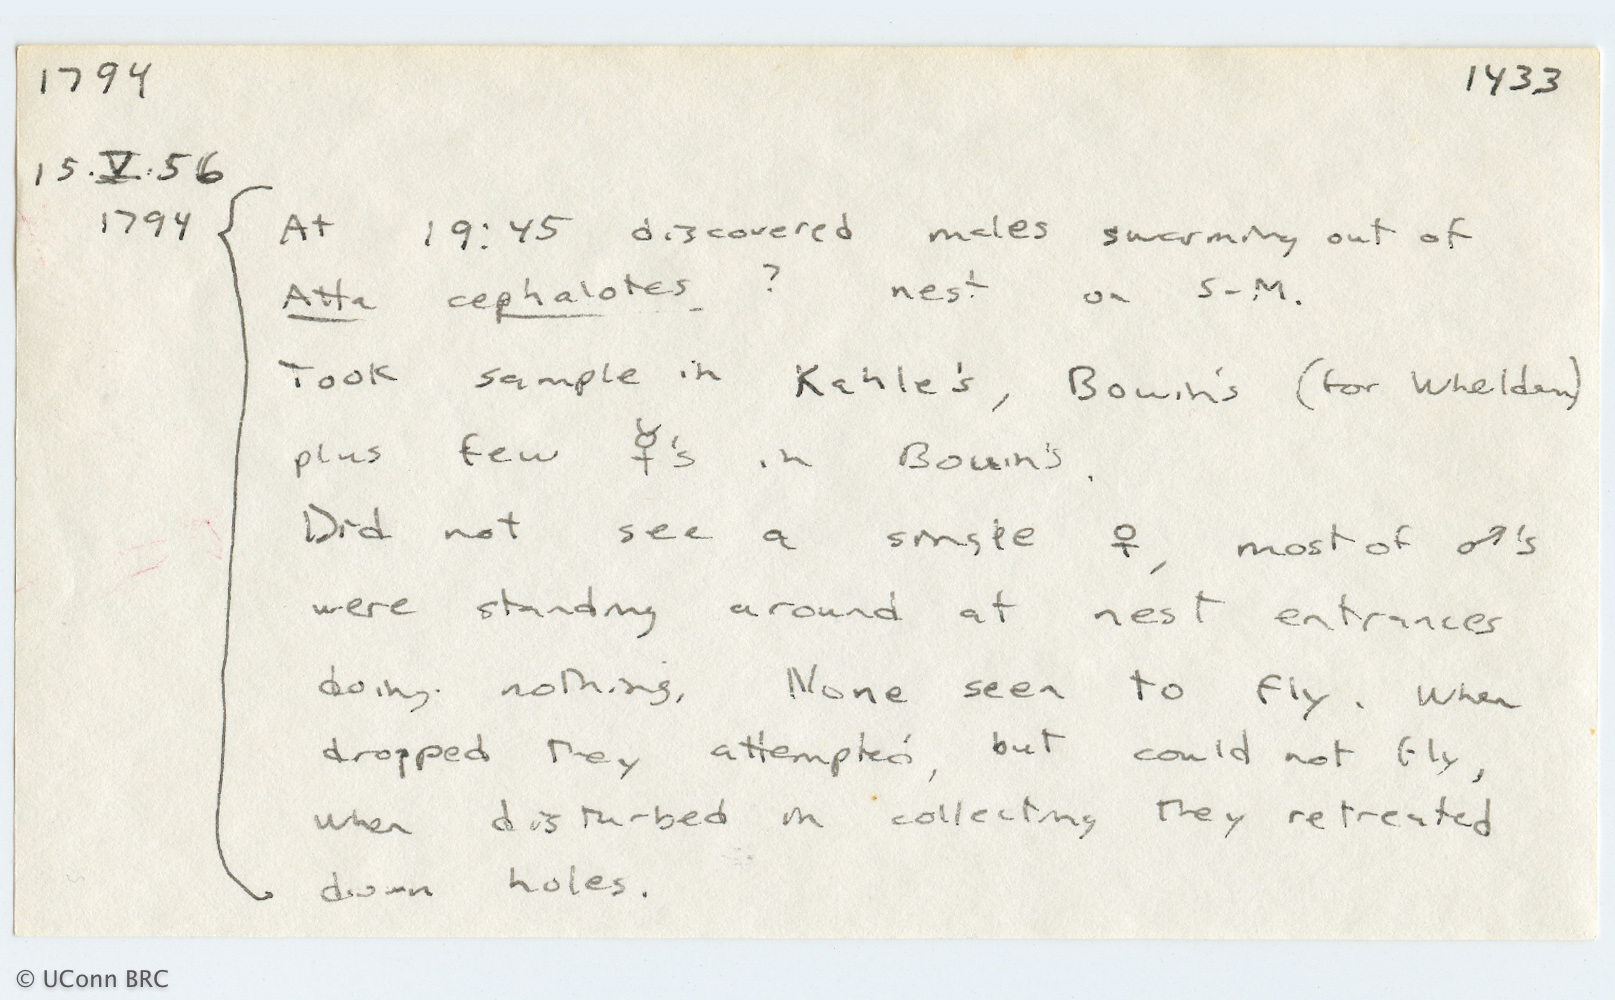 1794 1433
15.V.56
1794 At 19:45 discovered males swarming out of
Atta cephalotes ? nest on S-M.
Took sample in Kahle's, Bouin's (for Whelden)
plus few ☿'s in Bouin's.
Did not see a single ♀, most of ♂'s
were standing around at nest entrances
doing nothing. None seen to fly. When
dropped they attempted, but could not fly,
when disturbed in collecting they retreated
down holes.
© UConn BRC